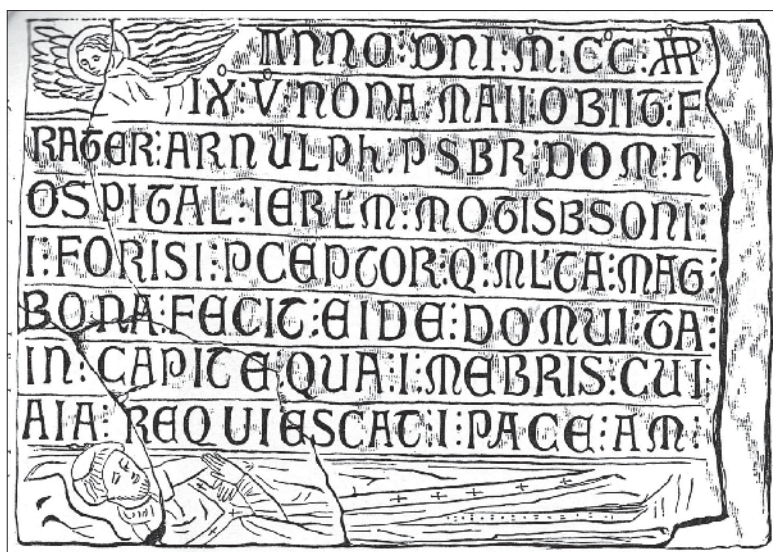 ANNO : DNI : M̊ : CC̊ :
IX : V̊ : NONA MAII : OBIIT : F
RATER : ARNULPh : PSBR : DOM : h
OSPITAL : IERL'M : MOTISBSONI :
I : FORISI : PCEPTOR : Q : ML'TA : MAG :
BONA : FECIT : EIDE : DOMUI : TA :
IN : CAPITE : QUA : I : MEBRIS : CUI
AIA : REQUIESCAT : I : PACE : AM :